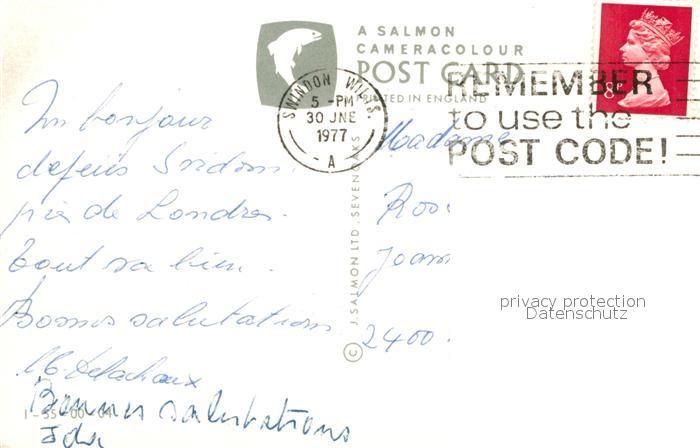 A SALMON
CAMERACOLOUR
POST CARD
PRINTED IN ENGLAND
SWINDON WILTS
5 - PM
30 JNE
1977
A
REMEMBER
to use the
POST CODE!
8P
Un bonjour
depuis
près de Londres.
tout va bien.
Bonnes salutations
Bonnes salutations
Ida
© J. SALMON LTD., SEVENOAKS
Madame
2400
privacy protection
Datenschutz